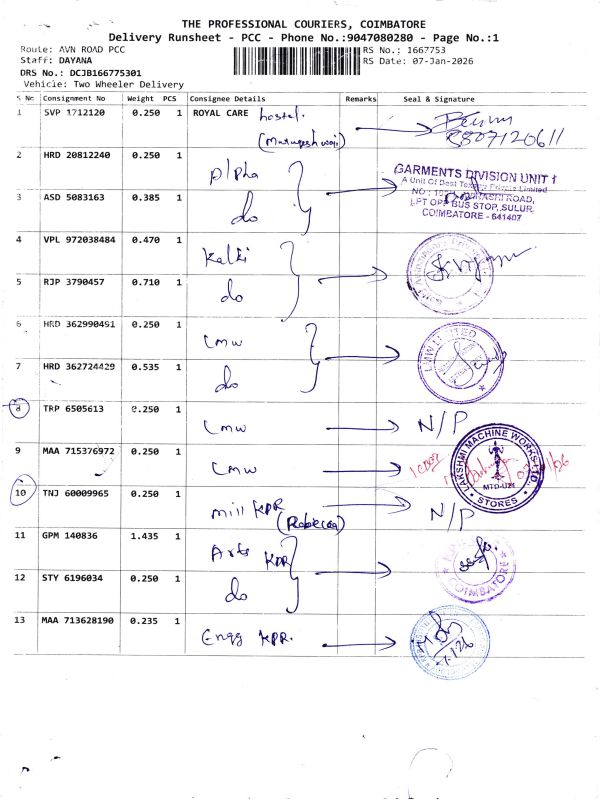 THE PROFESSIONAL COURIERS, COIMBATORE
Delivery Runsheet - PCC - Phone No.:9047080280 - Page No.:1
Route: AVN ROAD PCC
RS No.: 1667753
Staff: DAYANA
RS Date: 07-Jan-2026
DRS No.: DCJB166775301
Vehicle: Two Wheeler Delivery
S No Consignment No Weight PCS Consignee Details Remarks Seal & Signature
1 SVP 1712120 0.250 1 ROYAL CARE hostel.
8807120611
2 HRD 20812240 0.250 1 Alpha
GARMENTS DIVISION UNIT 1
A Unit Of Best
Private Limited
3 ASD 5083163 0.385 1 do
ROAD,
LPT OPP BUS STOP, SULUR,
COIMBATORE - 641407
4 VPL 972038484 0.470 1 Kalki
5 RJP 3790457 0.710 1 do
6 HRD 362990491 0.250 1 LMW
LMW LIMITED
7 HRD 362724429 0.535 1 do
8 TRP 6505613 0.250 1 LMW N/P
9 MAA 715376972 0.250 1 LMW
LAKSHMI MACHINE WORKS LTD.
STORES
10 TNJ 60009965 0.250 1 Mill KPR (Rebecca) N/P
11 GPM 140836 1.435 1 Arts KPR
COIMBATORE
12 STY 6196034 0.250 1 do
13 MAA 713628190 0.235 1 Engg KPR.